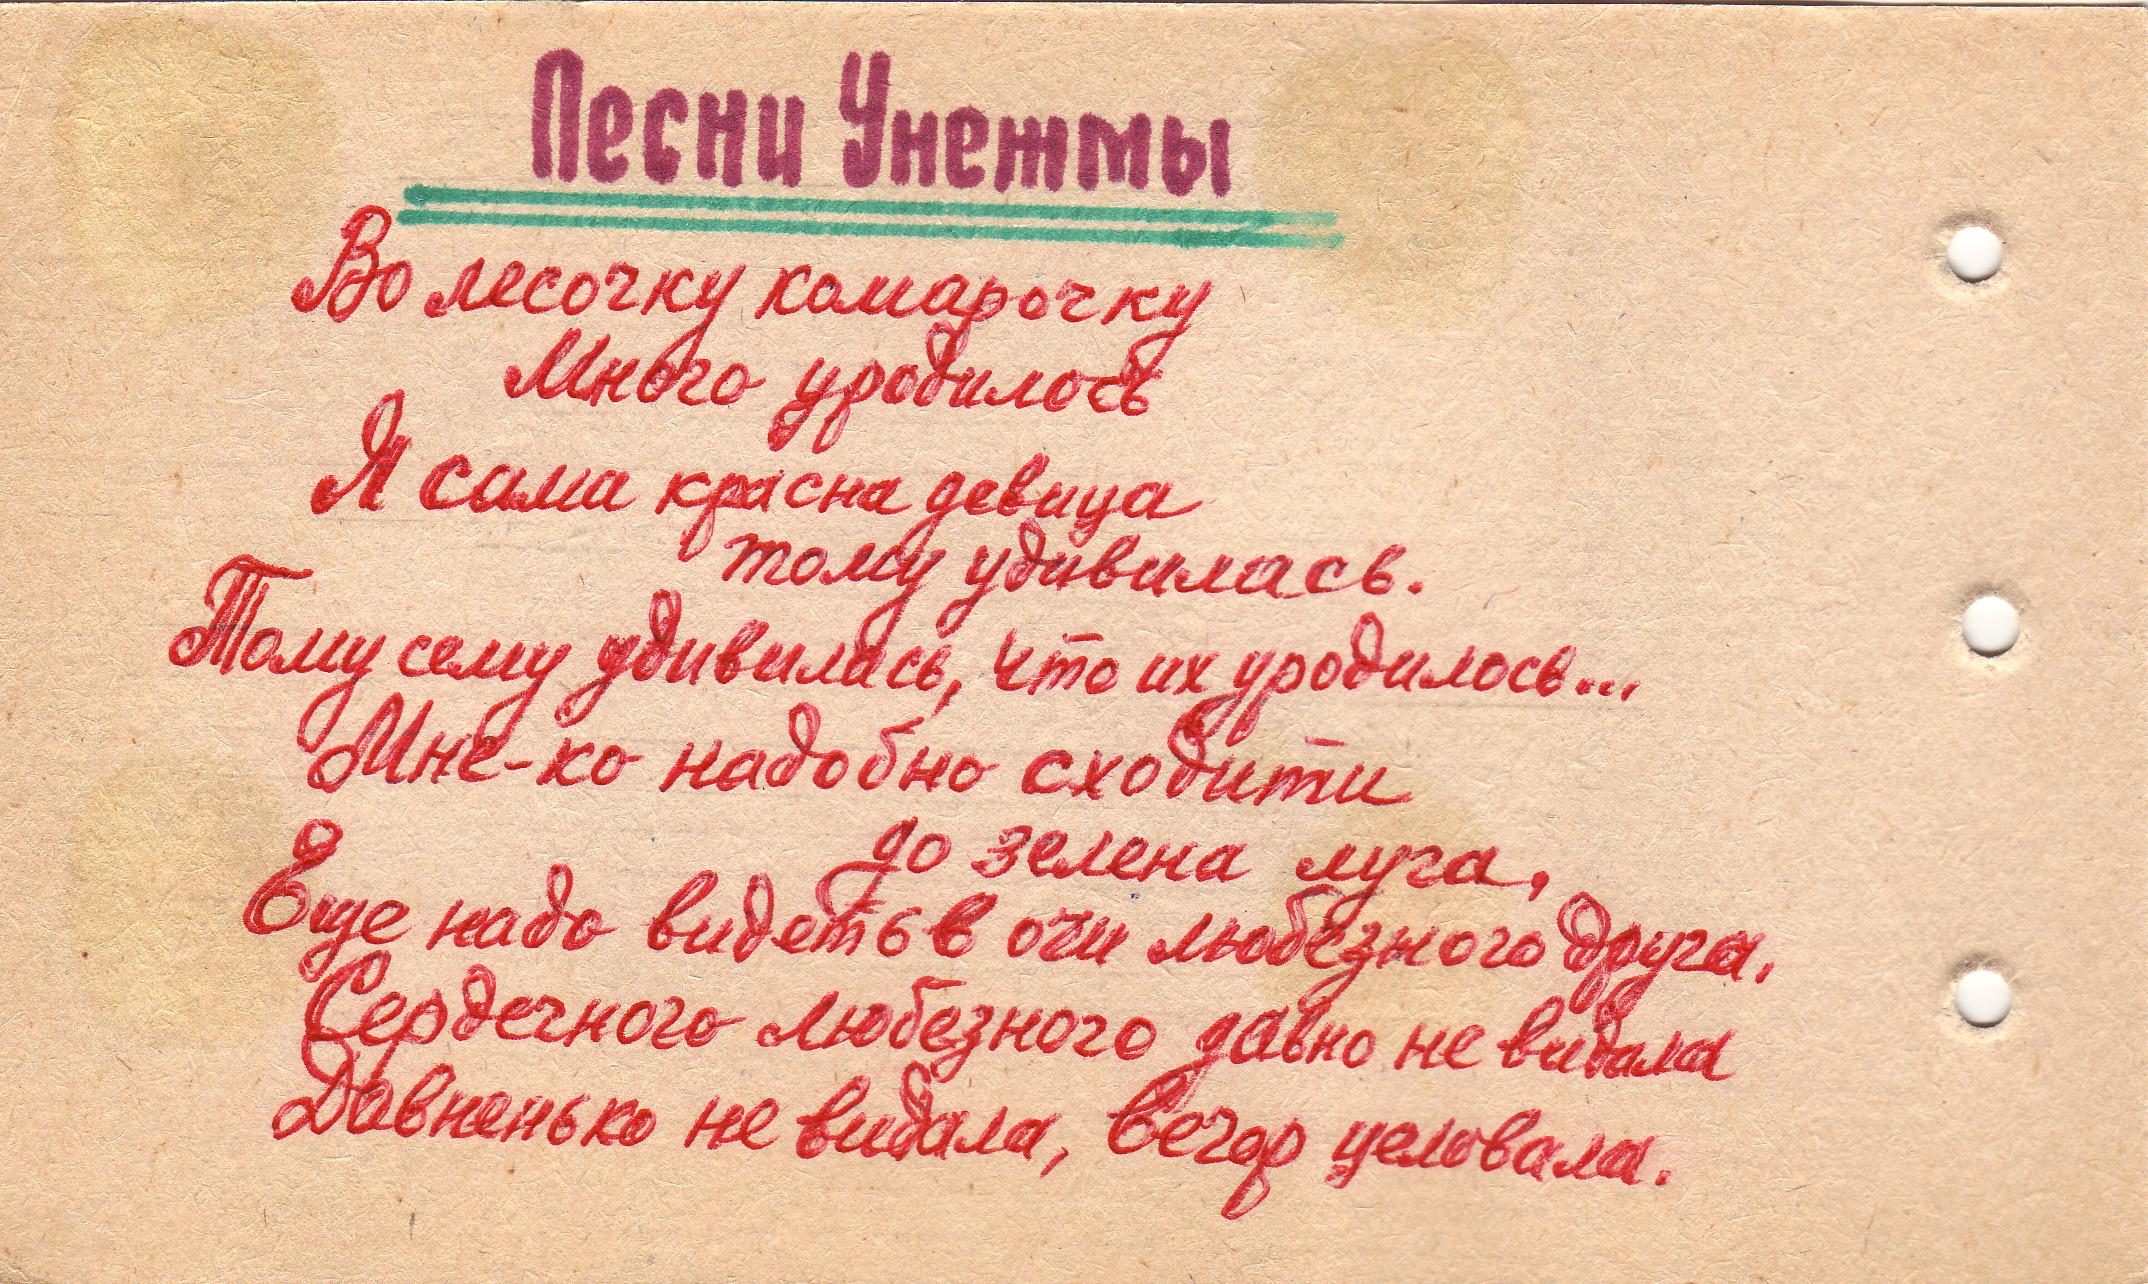 Песни Унежмы
Во лесочку комарочку
Много уродилось
Я сама красна девица
тому удивилась.
Тому сему удивилась, что их уродилось...
Мне-ко надобно сходити
до зелена луга,
Еще надо видеть в очи любезного друга,
Сердечного любезного давно не видала
Давненько не видала, вечор целовала.